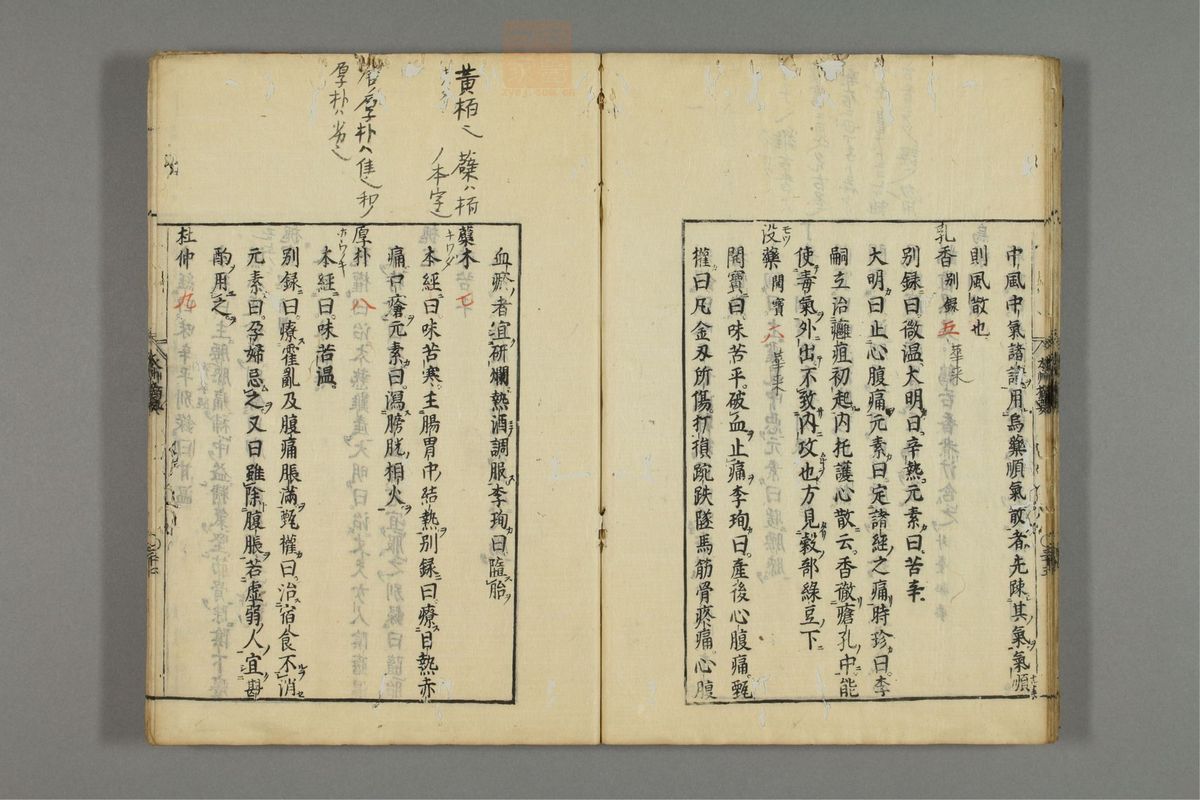 中風中氣諸證用烏藥順氣散者先踈其氣氣順
則風散也
乳香 別錄 五
別録曰微温大明曰辛熱元素曰苦辛
大明曰止心腹痛元素曰定諸經之痛時珍曰李
嗣立治癰疽初起内托護心散云香徹瘡孔中能
使毒氣外出不致内攻也方見穀部綠豆下
没藥 開寶 六
モツ
開寶曰味苦平破血止痛李珣曰產後心腹痛甄
權曰凡金刃所傷打損踠跌墜馬筋骨疼痛心腹
血瘀者宜研爛熱酒調服李珣曰墮胎
蘗木 七
キワタ
本經曰味苦寒主腸胃中結熱別録曰療目熱赤
痛口瘡元素曰瀉膀胱相火
厚朴 八
本經曰味苦温
別録曰療霍亂及腹痛脹滿甄權曰治宿食不消
元素曰孕婦忌之又曰雖除腹脹若虚弱人宜斟
酌用之
杜仲 九
黄栢也
蘗ハ栢
ノ本字
厚朴ハ